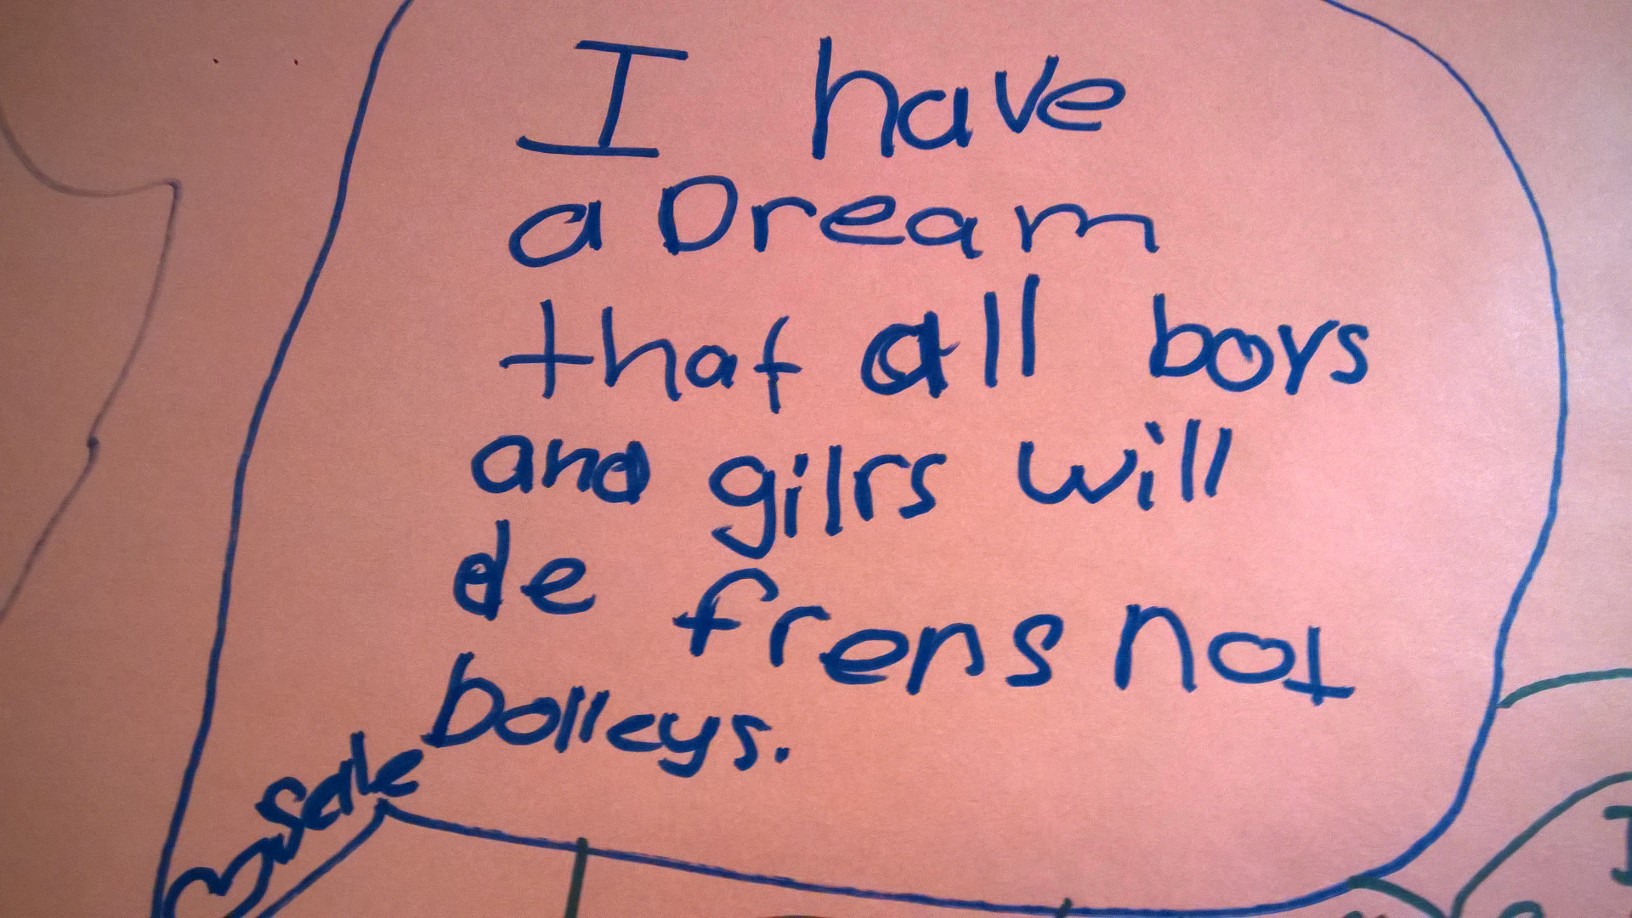 I have
a Dream
that all boys
and gilrs will
de frens not
bolleys.
sale
I